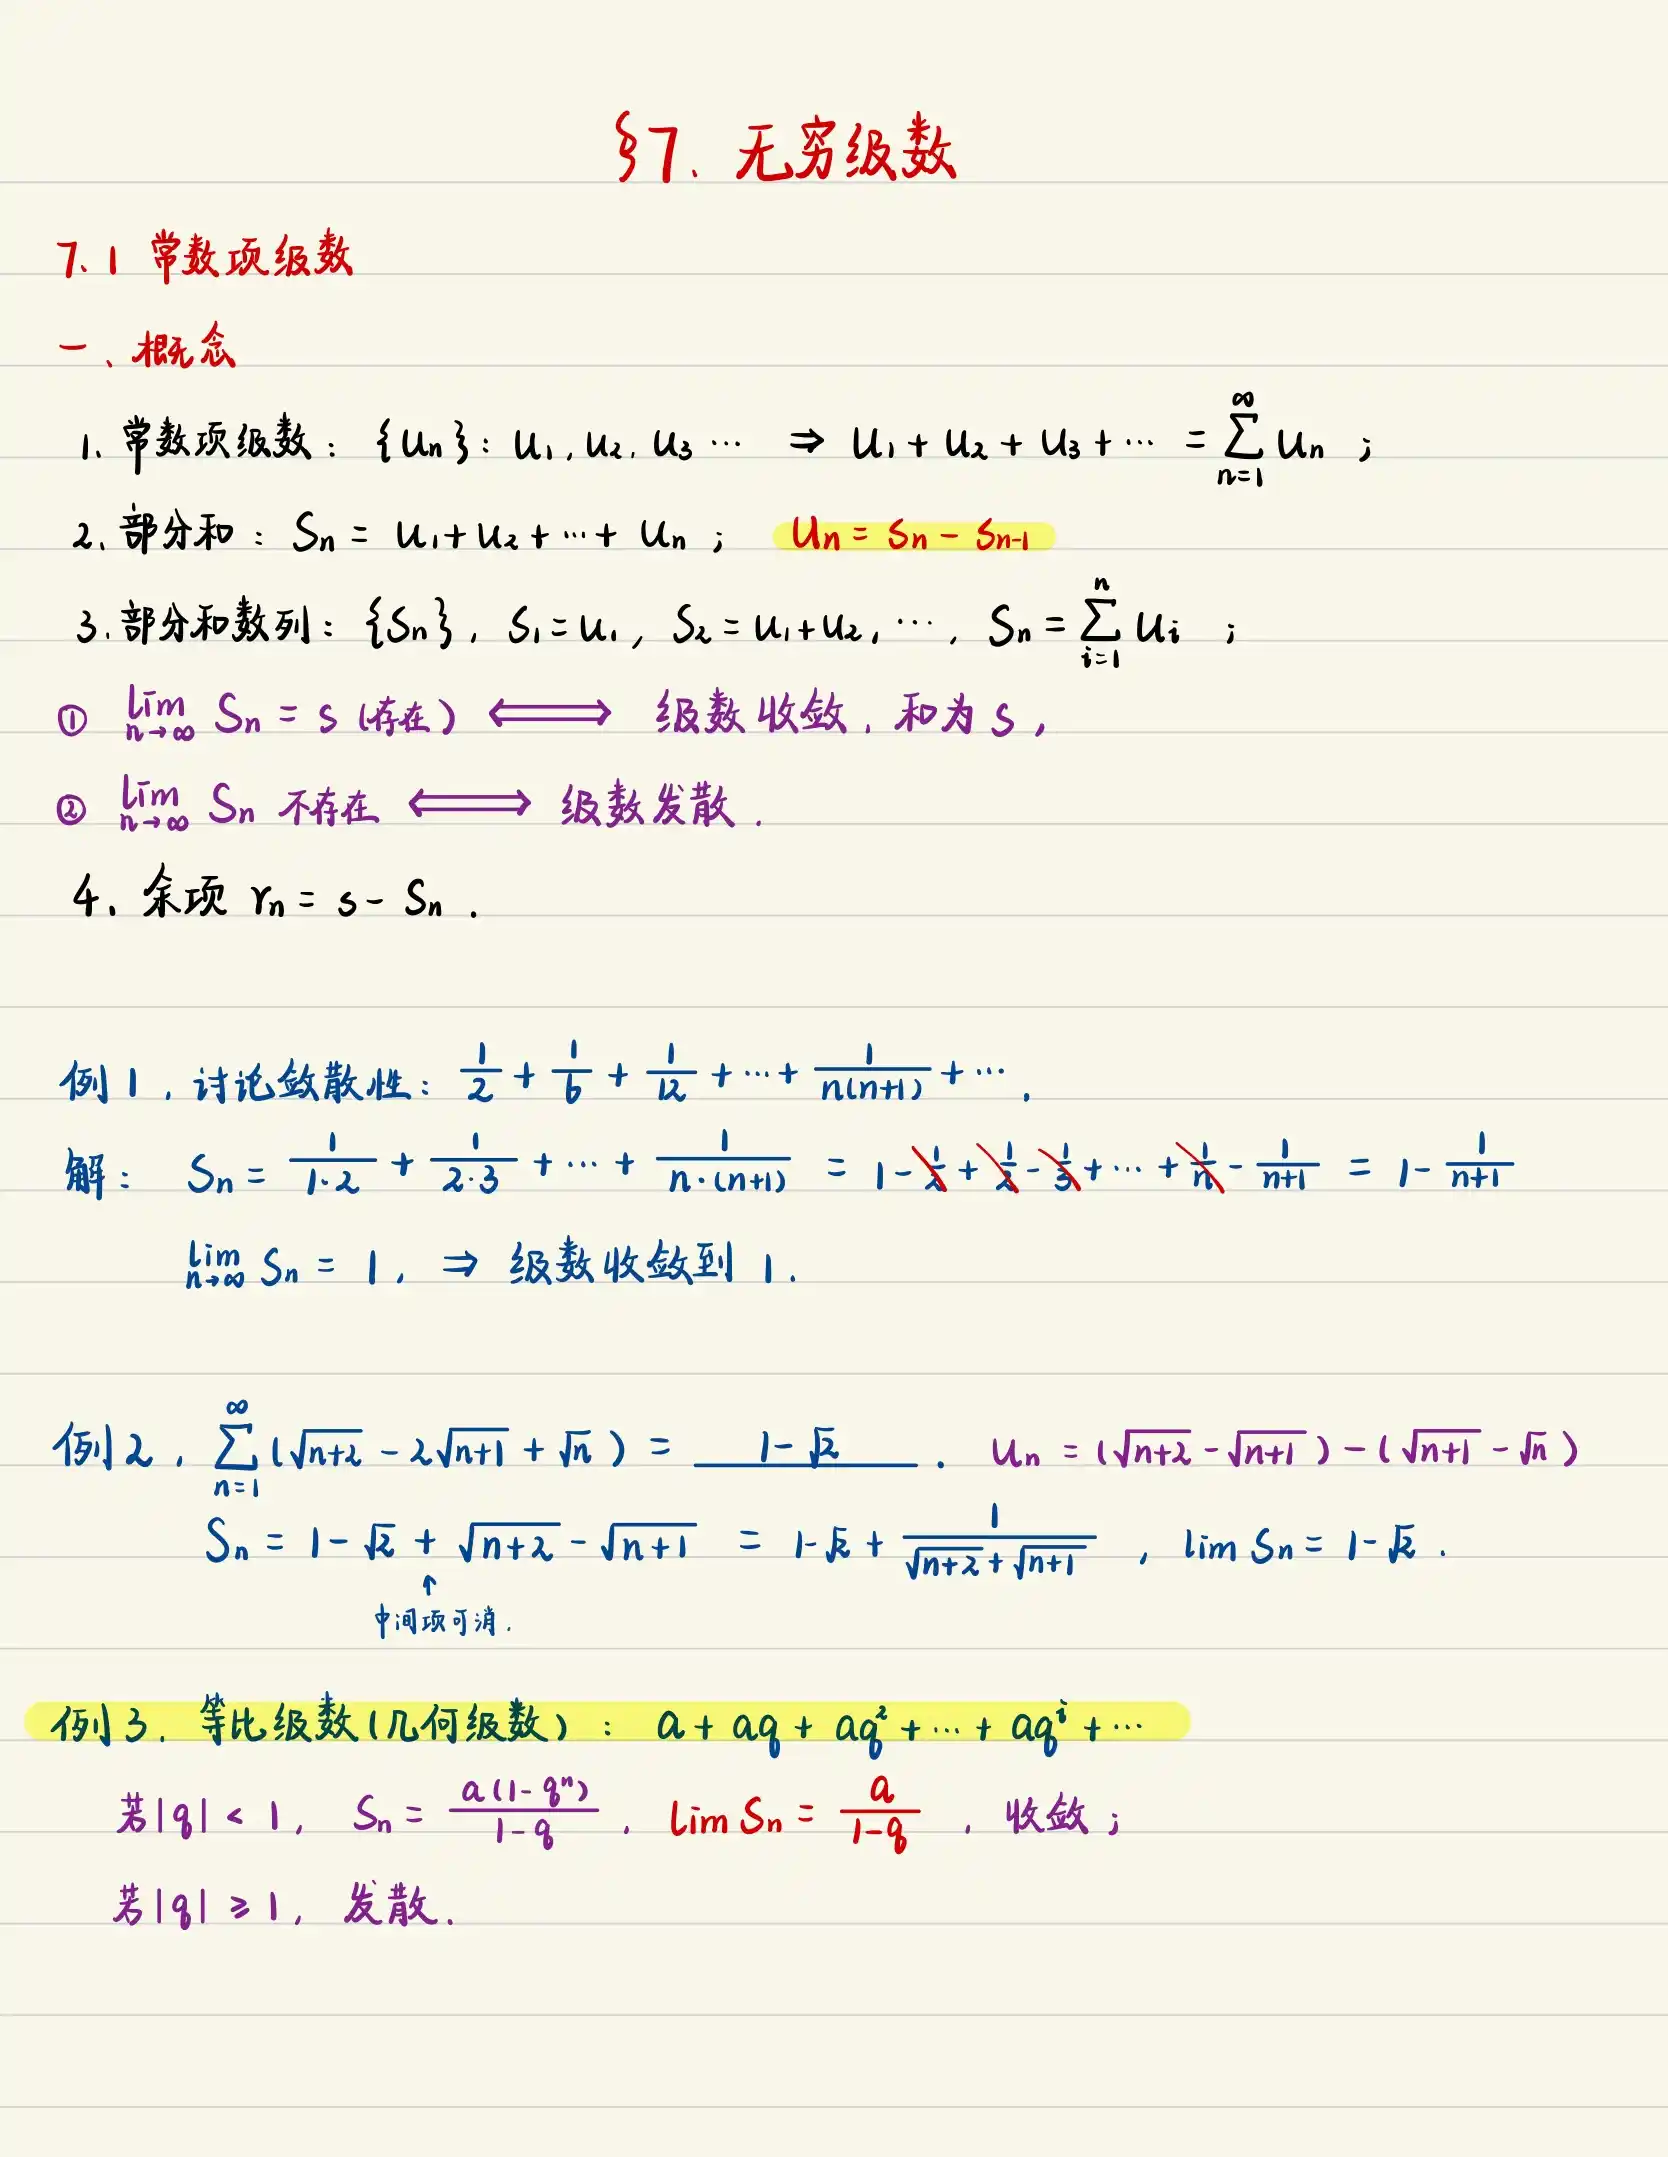 §7、无穷级数
7.1 常数项级数
一、概念
1、常数项级数：{uₙ}：u₁, u₂, u₃ ⋯ ⇒ u₁ + u₂ + u₃ + ⋯ = ∑_{n=1}^{∞} uₙ ；
2、部分和：Sₙ = u₁ + u₂ + ⋯ + uₙ ； uₙ = Sₙ - Sₙ₋₁
3、部分和数列：{Sₙ}, S₁ = u₁, S₂ = u₁ + u₂, ⋯, Sₙ = ∑_{i=1}^{n} uᵢ ；
① lim_{n→∞} Sₙ = s (存在) ⟺ 级数收敛, 和为 s,
② lim_{n→∞} Sₙ 不存在 ⟺ 级数发散.
4、余项 rₙ = s - Sₙ .
例1, 讨论敛散性：1/2 + 1/6 + 1/12 + ⋯ + 1/(n(n+1)) + ⋯ .
解：Sₙ = 1/(1·2) + 1/(2·3) + ⋯ + 1/(n·(n+1)) = 1 - 1/2 + 1/2 - 1/3 + ⋯ + 1/n - 1/(n+1) = 1 - 1/(n+1)
lim_{n→∞} Sₙ = 1, ⇒ 级数收敛到 1.
例2, ∑_{n=1}^{∞} (√(n+2) - 2√(n+1) + √n) = 1 - √2 . uₙ = (√(n+2) - √(n+1)) - (√(n+1) - √n)
Sₙ = 1 - √2 + √(n+2) - √(n+1) = 1 - √2 + 1/(√(n+2) + √(n+1)), lim Sₙ = 1 - √2 .
↑
中间项可消.
例3. 等比级数(几何级数)：a + aq + aq² + ⋯ + aqⁱ + ⋯
若|q| < 1, Sₙ = a(1-qⁿ)/(1-q), lim Sₙ = a/(1-q), 收敛；
若|q| ≥ 1, 发散.